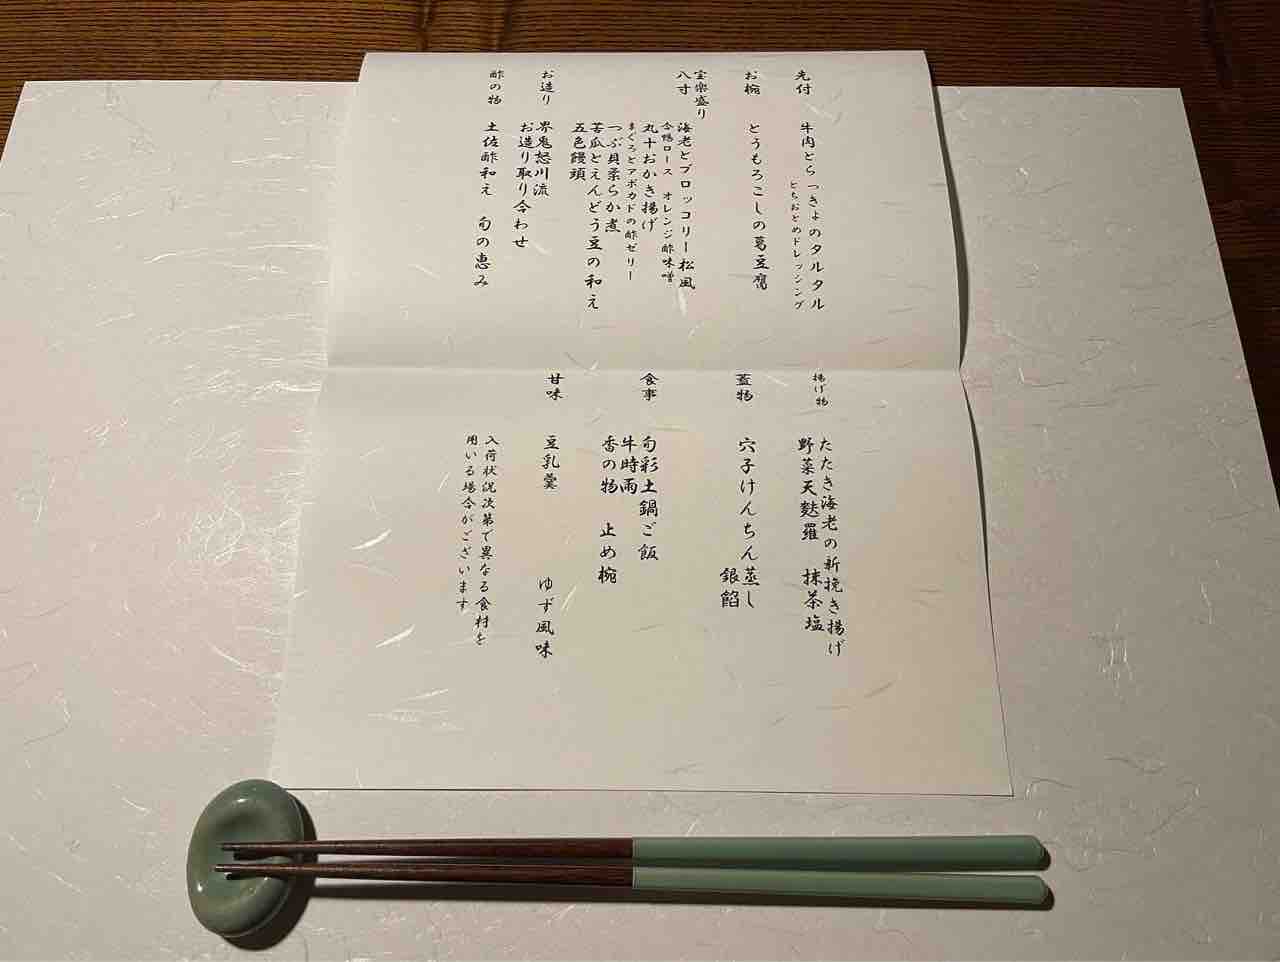 先付
牛肉とらっきょのタルタル
とちおとめドレッシング
お椀
とうもろこしの葛豆腐
宝楽盛り
八寸
海老とブロッコリー松風
合鴨ロース オレンジ酢味噌
丸十おかき揚げ
まぐろとアボカドの酢ゼリー
つぶ貝柔らか煮
苦瓜とえんどう豆の和え
五色饅頭
お造り
界鬼怒川流
お造り取り合わせ
酢の物
土佐酢和え 旬の恵み
揚げ物
たたき海老の新挽き揚げ
野菜天麩羅 抹茶塩
蓋物
穴子けんちん蒸し
銀餡
食事
旬彩土鍋ご飯
牛時雨
香の物 止め椀
甘味
豆乳羹 ゆず風味
入荷状況次第で異なる食材を
用いる場合がございます